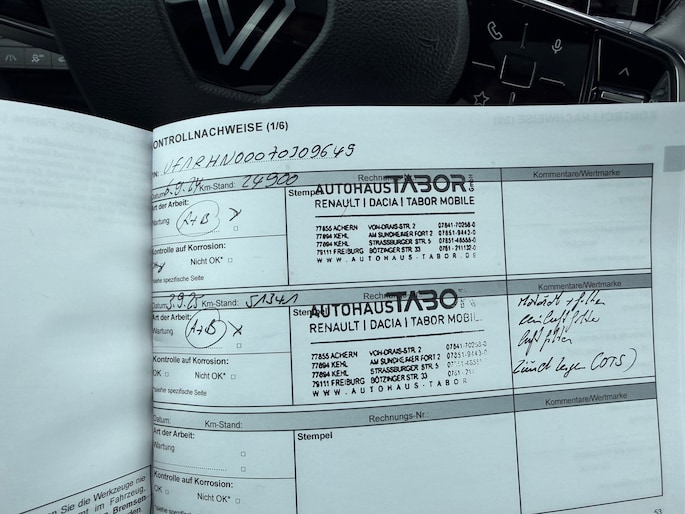 KONTROLLNACHWEISE (1/6)
Datum: 5.9.24 Km-Stand: 24900
Kommentare/Wertmarke
Art der Arbeit:
Stempel
Wartung
A+B
Kontrolle auf Korrosion:
Nicht OK*
*siehe spezifische Seite
AUTOHAUS TABOR GmbH
RENAULT | DACIA | TABOR MOBILE
77855 ACHERN VON-DRAIS-STR. 2 07841-70258-0
77694 KEHL AM SUNDHEIMER FORT 2 07851-9442-0
77694 KEHL STRASSBURGER STR. 5 07851-48555-0
79111 FREIBURG BÖTZINGER STR. 33 0761-211132-0
WWW.AUTOHAUS-TABOR.DE
Datum: 3.9.25 Km-Stand: 51341
Kommentare/Wertmarke
Art der Arbeit:
Stempel
Wartung
A+B
Kontrolle auf Korrosion:
OK Nicht OK*
*siehe spezifische Seite
AUTOHAUS TABO
RENAULT | DACIA | TABOR MOBIL
77855 ACHERN VON-DRAIS-STR. 2 07841-70258-0
77694 KEHL AM SUNDHEIMER FORT 2
77694 KEHL STRASSBURGER STR. 5
79111 FREIBURG BÖTZINGER STR. 33
WWW.AUTOHAUS-TABOR
Datum: Km-Stand: Rechnungs-Nr.:
Kommentare/Wertmarke
Art der Arbeit:
Stempel
Wartung
Kontrolle auf Korrosion:
OK Nicht OK*
*siehe spezifische Seite
53
Sie die Werkzeuge nie
im Fahrzeug,
Bremsen